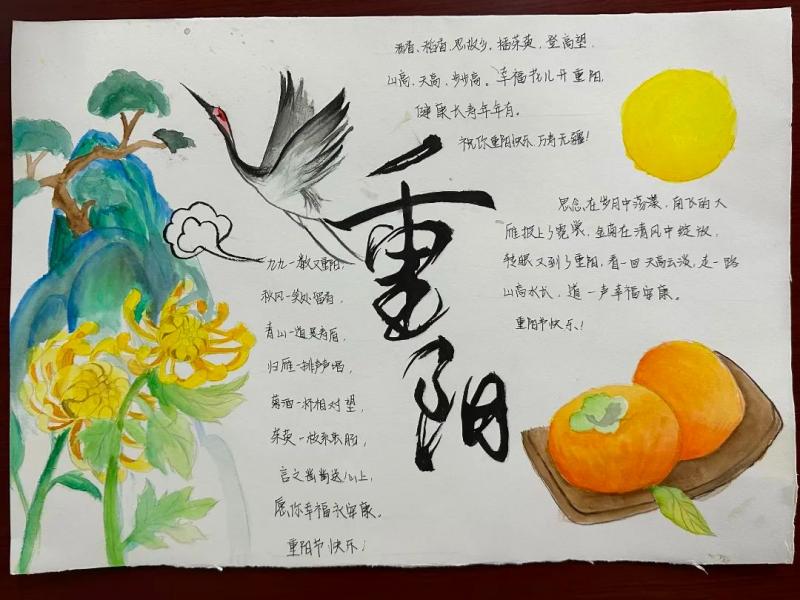 酒香、稻香、思故乡,插茱萸,登高望,
山高、天高、步步高。幸福花儿开重阳,
健康长寿年年有。
祝你重阳快乐,万寿无疆!
重阳
思念在岁月中荡漾,南飞的大
雁披上了霓裳,金菊在清风中绽放,
转眼又到了重阳,看一回天高云淡,走一路
山高水长,道一声幸福安康。
重阳节快乐!
九九一数又重阳,
秋风一笑处留香,
青山一道呈寿眉,
归雁一排声声唱,
菊酒一杯相对望,
茱萸一枚系
言之凿凿送
愿你幸福永安康。
重阳节快乐!